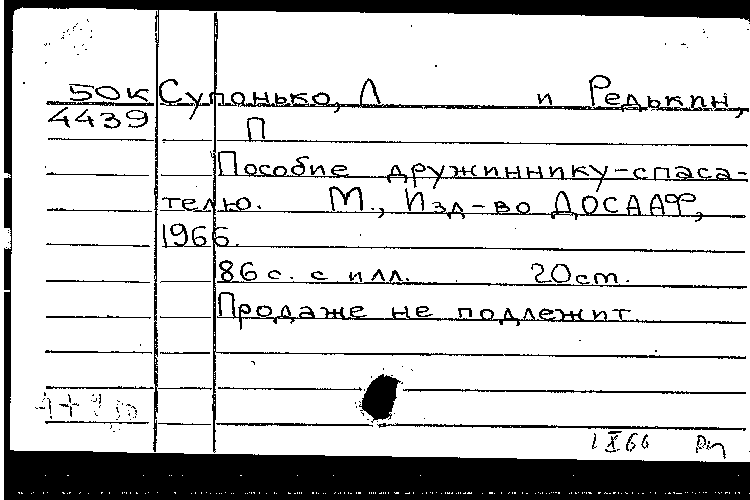 50К Супонько, Л и Редькин,
4439 П
Пособие дружиннику-спаса-
телю. М., Изд-во ДОСААФ,
1966.
86 с. с илл. 20 ст.
Продаже не подлежит
1 X 66